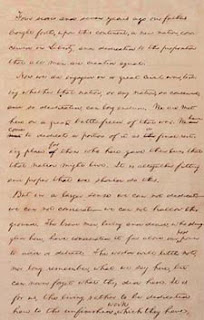 Four score and seven years ago our fathers
brought forth, upon this continent, a new nation, con-
ceived in Liberty, and dedicated to the proposition
that all men are created equal.
Now we are engaged in a great civil war, test-
ing whether that nation, or any nation so conceived,
and so dedicated, can long endure. We are met
here on a great battlefield of that war. We have
come
to dedicate a portion of it as the final rest-
for
ing place of those who here gave their lives that
that nation might live. It is altogether fitting
and proper that we should do this.
But in a larger sense we can not dedicate
we can not consecrate we can not hallow this
ground. The brave men, living and dead, who strug-
poor
gled here, have consecrated it far above our power
to add or detract. The world will little note,
nor long remember, what we say here, but
can never forget what they did here. It is
for us, the living, rather to be dedicated
work
here to the unfinished which they have,